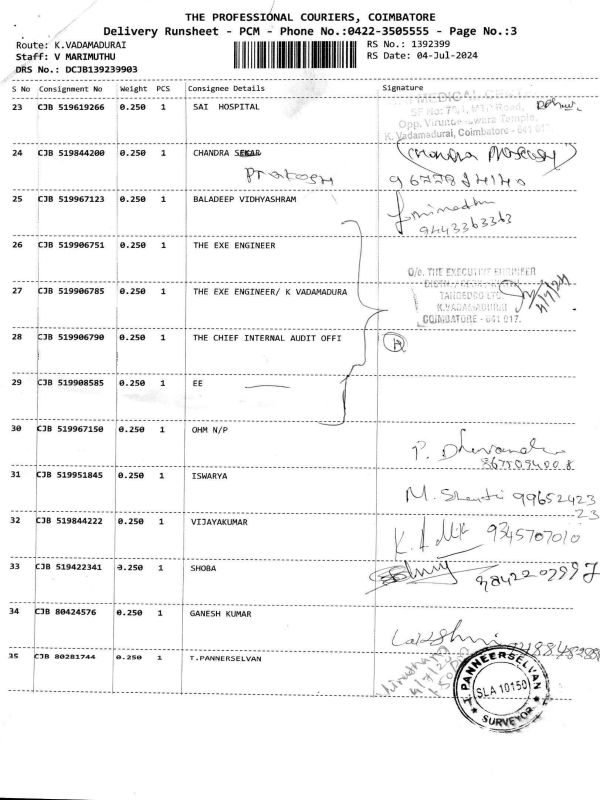 THE PROFESSIONAL COURIERS, COIMBATORE
Delivery Runsheet - PCM - Phone No.:0422-3505555 - Page No.:3
Route: K.VADAMADURAI
RS No.: 1392399
Staff: V MARIMUTHU
RS Date: 04-Jul-2024
DRS No.: DCJB139239903
S No Consignment No Weight PCS Consignee Details Signature
23 CJB 519619266 0.250 1 SAI HOSPITAL
MEDICAL
Opp. Temple,
K. Vadamadurai, Coimbatore - 641 017.
24 CJB 519844200 0.250 1 CHANDRA SEKAR
Prakash
25 CJB 519967123 0.250 1 BALADEEP VIDHYASHRAM
9443363363
26 CJB 519906751 0.250 1 THE EXE ENGINEER
O/o. THE EXECUTIVE ENGINEER
27 CJB 519906785 0.250 1 THE EXE ENGINEER/ K VADAMADURA
TANGEDCO LTD.
K.VADAMADURAI
COIMBATORE - 641 017.
4/7/24
28 CJB 519906790 0.250 1 THE CHIEF INTERNAL AUDIT OFFI
29 CJB 519908585 0.250 1 EE
30 CJB 519967150 0.250 1 OHM N/P
31 CJB 519951845 0.250 1 ISWARYA
M. Shanti 99652423
23
32 CJB 519844222 0.250 1 VIJAYAKUMAR
9345707010
33 CJB 519422341 0.250 1 SHOBA
34 CJB 80424576 0.250 1 GANESH KUMAR
Lakshmi
35 CJB 80281744 0.250 1 T.PANNERSELVAN
T. PANNEERSELVAN
SLA 10150
SURVEYOR